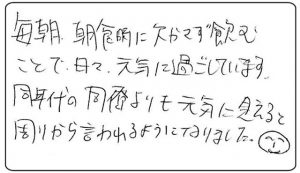 毎朝、朝食時に欠かさず飲む
ことで、日々、元気に過ごしています。
同年代の同僚よりも元気に見えると
周りから言われるようになりました。